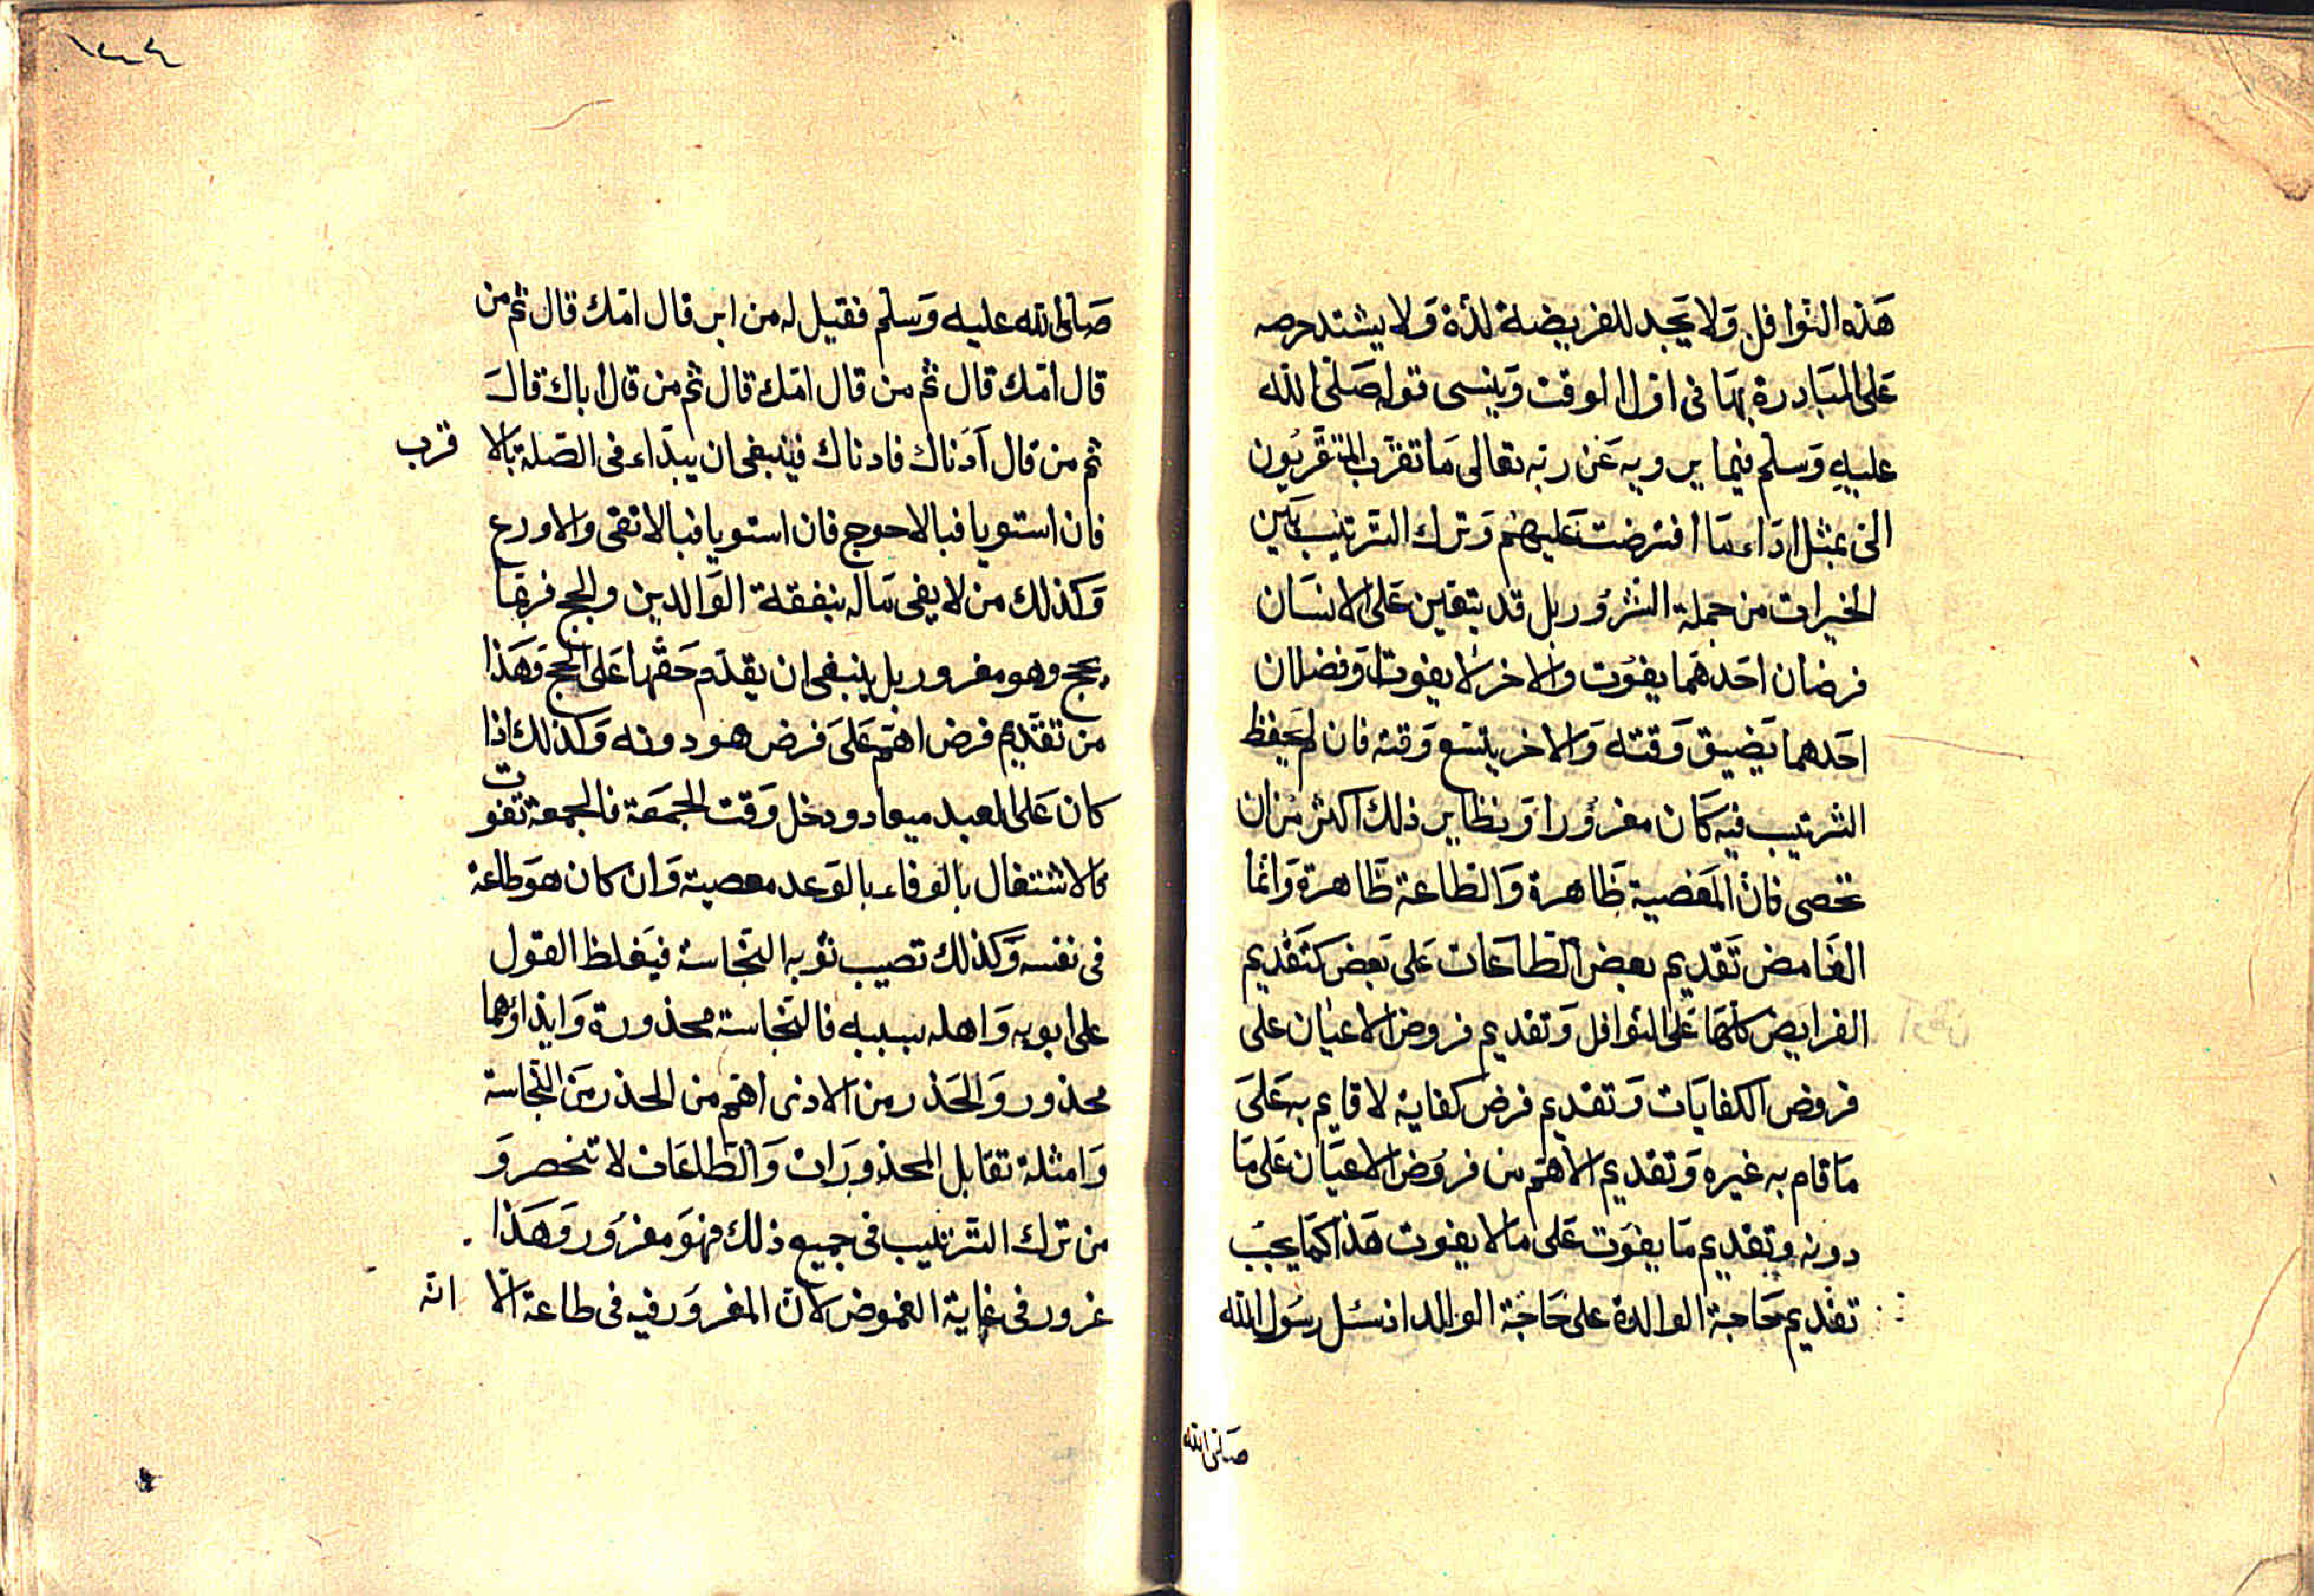 هذه النوافل ولا يجد للفريضة لذة ولا يشتد حرصه
على المبادرة بها في اول الوقت وينسى قوله صلى الله
عليه وسلم فيما يرويه عن ربه تعالى ما تقرب المتقربون
الى بمثل اداء ما افترضت عليهم وترك الترتيب بين
الخيرات من جملة الشرور بل قد يتعين على الانسان
فرضان احدهما يفوت والاخر لا يفوت او فضلان
احدهما يضيق وقته والاخر يتسع وقته فان لم يحفظ
الترتيب فيه كان مغرورا ونظاير ذلك اكثر من ان
تحصى فان المعصية ظاهرة والطاعة ظاهرة وانما
الغامض تقديم بعض الطاعات على بعض كتقديم
الفرايض كلها على النوافل وتقديم فروض الاعيان على
فروض الكفايات وتقديم فرض كفاية لا قايم به على
ما قام به غيره وتقديم الاهم من فروض الاعيان على ما
دونه وتقديم ما يفوت على ما لا يفوت هذا كما يجب
تقديم حاجة الوالدة على حاجة الوالد اذ سئل رسول الله
صلى الله
صلى الله عليه وسلم فقيل له من ابر قال امك قال ثم من
قال امك قال ثم من قال امك قال ثم من قال اباك قال
ثم من قال ادناك فادناك فينبغي ان يبداء في الصلة بالا قرب
فان استويا فبالاحوج فان استويا فبالاتقى والاورع
وكذلك من لا يفي ماله بنفقة الوالدين والحج فربما
يحج وهو مغرور بل ينبغي ان يقدم حقهما على الحج وهذا
من تقديم فرض اهم على فرض هو دونه وكذلك اذا
كان على العبد ميعاد ودخل وقت الجمعة فالجمعة تفوت
فالاشتغال بالوفاء بالوعد معصية وان كان هو طاعة
في نفسه وكذلك تصيب ثوبه النجاسة فيغلظ القول
على ابويه واهله بسببه فالنجاسة محذورة وايذاؤهما
محذور والحذر من الاذى اهم من الحذر من النجاسة
وامثلة تقابل المحذورات والطاعات لا تنحصر و
من ترك الترتيب في جميع ذلك فهو مغرور وهذا
غرور في غاية الغموض لان المغرور فيه في طاعة الا انه